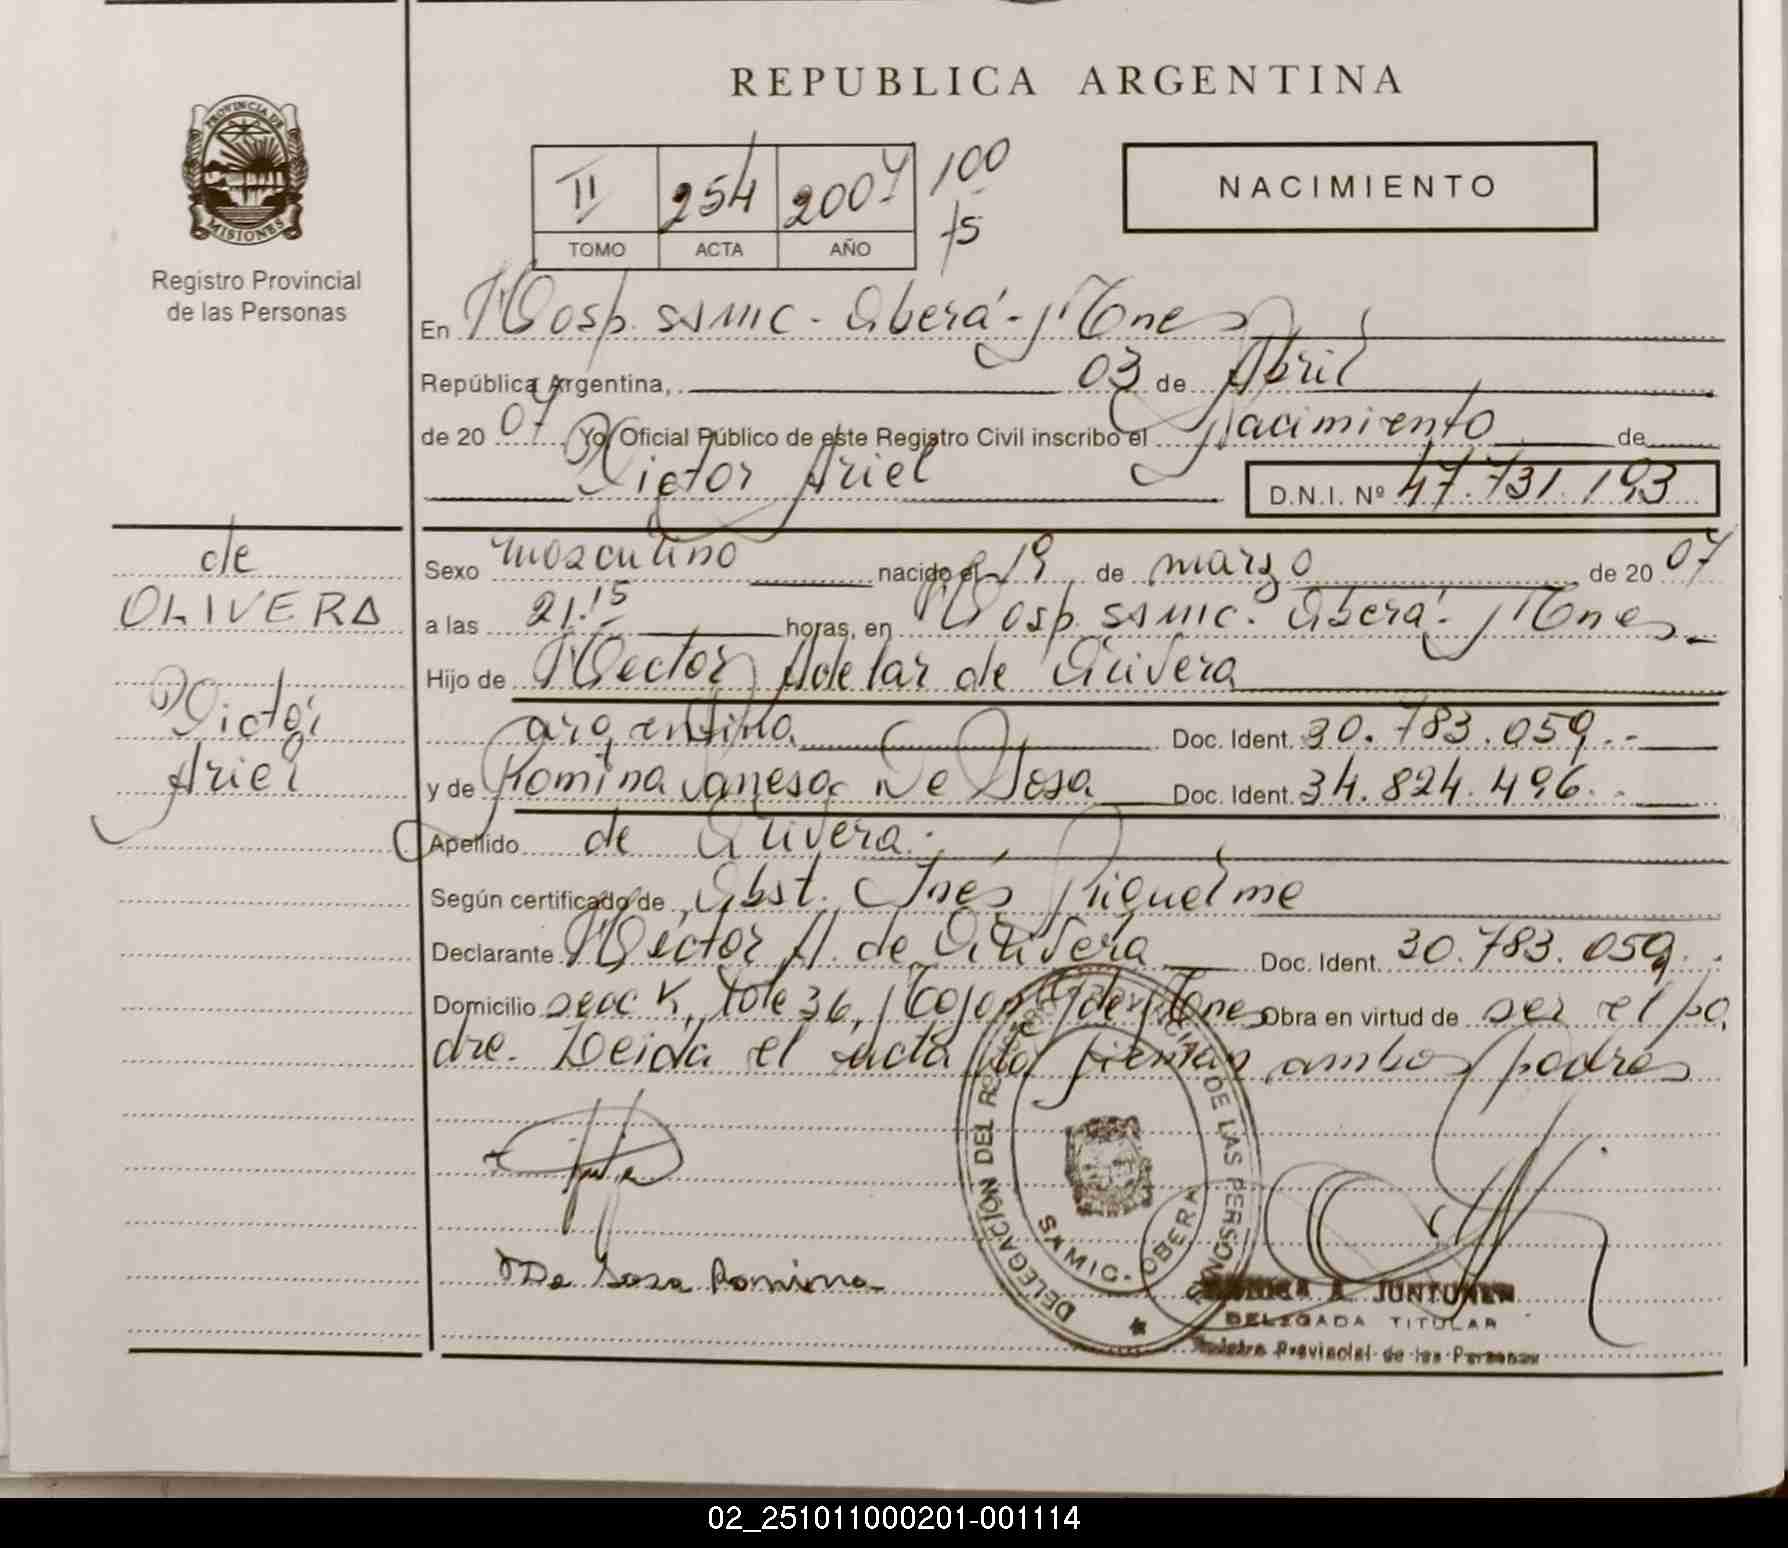 REPUBLICA ARGENTINA
PROVINCIA DE MISIONES
Registro Provincial
de las Personas
II 254 2007 100
TOMO ACTA AÑO 75
NACIMIENTO
En Hosp. SAMIC - Oberá - Mnes
República Argentina, 03 de Abril
de 20 07 Yo, Oficial Público de este Registro Civil inscribo el Nacimiento de
Victor Ariel D.N.I. Nº 47.731.193
de
OLIVERA
Victor
Ariel
Sexo masculino nacido el 19 de marzo de 20 07
a las 21.15 horas, en Hosp. SAMIC - Oberá - Mnes
Hijo de Hector Adelar de Olivera
argentino Doc. Ident. 30.783.059
y de Romina Vanesa De Sosa Doc. Ident. 34.824.496
Apellido de Olivera
Según certificado de Obst. Inés Riquelme
Declarante Héctor A. de Olivera Doc. Ident. 30.783.059
Domicilio secc K, lote 36, de Mnes Obra en virtud de ser el pa
dre. Leida el acta la firman ambos padres
De Sosa Romina
DELEGACIÓN DEL REGISTRO PROVINCIAL DE LAS PERSONAS
SAMIC - OBERA
A. JUNTUNEN
DELEGADA TITULAR
Registro Provincial de las Personas
02_251011000201-001114